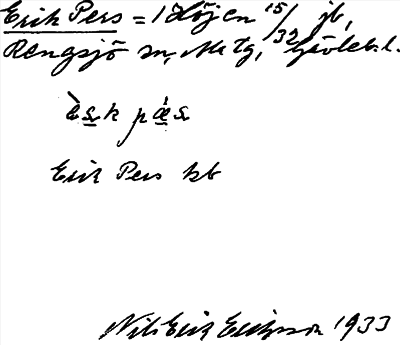 Erik Pers = 1 Höjen 15/32 jb,
Rengsjö sn, Me tg, Gävleb. l.
Erik Pers kb
Nils Erik Ericsson 1933